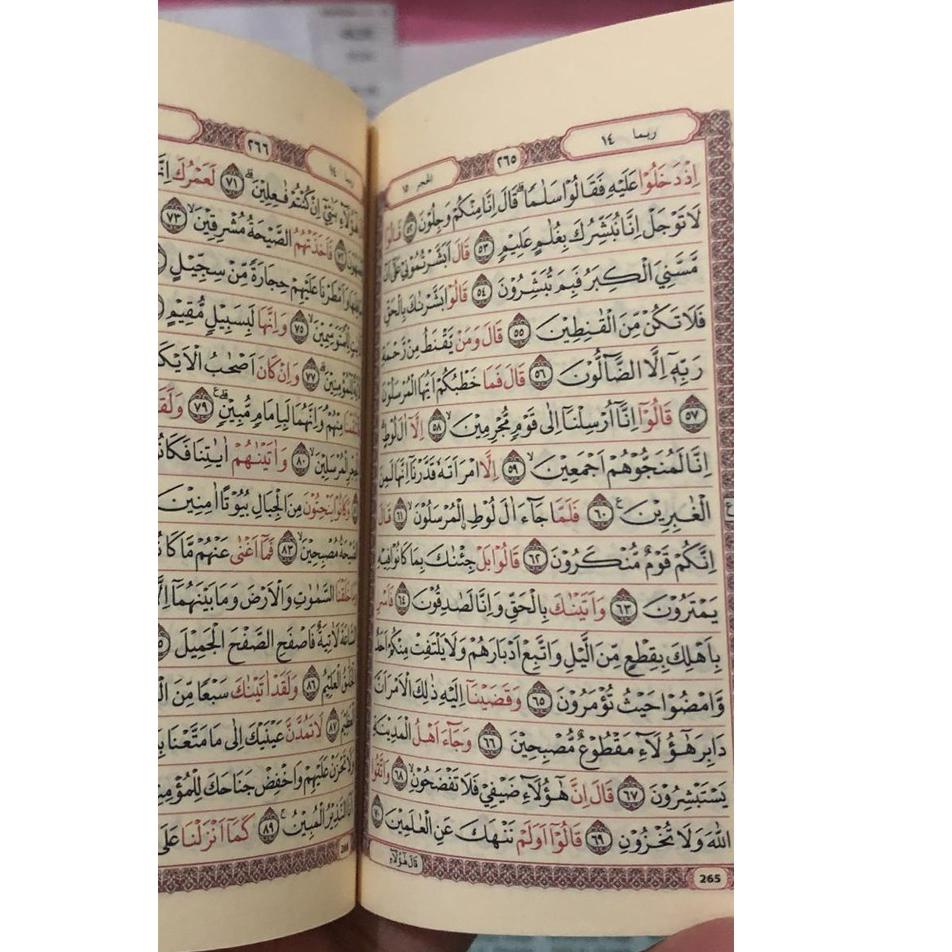 ربما ١٤
٢٦٥
الحجر ١٥
اِذْ دَخَلُوْا عَلَيْهِ فَقَالُوْا سَلٰمًاۗ قَالَ اِنَّا مِنْكُمْ وَجِلُوْنَ ٥٢ قَالُوْا
لَا تَوْجَلْ اِنَّا نُبَشِّرُكَ بِغُلٰمٍ عَلِيْمٍ ٥٣ قَالَ اَبَشَّرْتُمُوْنِيْ عَلٰٓى اَنْ
مَّسَّنِيَ الْكِبَرُ فَبِمَ تُبَشِّرُوْنَ ٥٤ قَالُوْا بَشَّرْنٰكَ بِالْحَقِّ
فَلَا تَكُنْ مِّنَ الْقٰنِطِيْنَ ٥٥ قَالَ وَمَنْ يَّقْنَطُ مِنْ رَّحْمَةِ
رَبِّهٖٓ اِلَّا الضَّاۤلُّوْنَ ٥٦ قَالَ فَمَا خَطْبُكُمْ اَيُّهَا الْمُرْسَلُوْنَ
٥٧ قَالُوْٓا اِنَّآ اُرْسِلْنَآ اِلٰى قَوْمٍ مُّجْرِمِيْنَۙ ٥٨ اِلَّآ اٰلَ لُوْطٍۗ
اِنَّا لَمُنَجُّوْهُمْ اَجْمَعِيْنَۙ ٥٩ اِلَّا امْرَاَتَهٗ قَدَّرْنَآ اِنَّهَا لَمِنَ
الْغٰبِرِيْنَ ࣖ ٦٠ فَلَمَّا جَاۤءَ اٰلَ لُوْطِ ِۨالْمُرْسَلُوْنَۙ ٦١ قَالَ
اِنَّكُمْ قَوْمٌ مُّنْكَرُوْنَ ٦٢ قَالُوْا بَلْ جِئْنٰكَ بِمَا كَانُوْا فِيْهِ
يَمْتَرُوْنَ ٦٣ وَاَتَيْنٰكَ بِالْحَقِّ وَاِنَّا لَصٰدِقُوْنَ ٦٤ فَاَسْرِ
بِاَهْلِكَ بِقِطْعٍ مِّنَ الَّيْلِ وَاتَّبِعْ اَدْبَارَهُمْ وَلَا يَلْتَفِتْ مِنْكُمْ اَحَدٌ
وَّامْضُوْا حَيْثُ تُؤْمَرُوْنَ ٦٥ وَقَضَيْنَآ اِلَيْهِ ذٰلِكَ الْاَمْرَ اَنَّ
دَابِرَ هٰٓؤُلَاۤءِ مَقْطُوْعٌ مُّصْبِحِيْنَ ٦٦ وَجَاۤءَ اَهْلُ الْمَدِيْنَةِ
يَسْتَبْشِرُوْنَ ٦٧ قَالَ اِنَّ هٰٓؤُلَاۤءِ ضَيْفِيْ فَلَا تَفْضَحُوْنِۙ ٦٨ وَاتَّقُوا
اللّٰهَ وَلَا تُخْزُوْنِ ٦٩ قَالُوْٓا اَوَلَمْ نَنْهَكَ عَنِ الْعٰلَمِيْنَ ٧٠
قَالَ هٰٓؤُلَاۤءِ
265
ربما ١٤
٢٦٦
هٰٓؤُلَاۤءِ بَنٰتِيْٓ اِنْ كُنْتُمْ فٰعِلِيْنَۗ ٧١ لَعَمْرُكَ
٧٢ فَاَخَذَتْهُمُ الصَّيْحَةُ مُشْرِقِيْنَۙ ٧٣
وَاَمْطَرْنَا عَلَيْهِمْ حِجَارَةً مِّنْ سِجِّيْلٍ
لِّلْمُتَوَسِّمِيْنَۙ ٧٥ وَاِنَّهَا لَبِسَبِيْلٍ مُّقِيْمٍ
لِّلْمُؤْمِنِيْنَۗ ٧٧ وَاِنْ كَانَ اَصْحٰبُ الْاَيْكَ
مِنْهُمْۘ وَاِنَّهُمَا لَبِاِمَامٍ مُّبِيْنٍۗ ࣖ ٧٩ وَلَقَ
الْمُرْسَلِيْنَۙ ٨٠ وَاٰتَيْنٰهُمْ اٰيٰتِنَا فَكَانُ
وَكَانُوْا يَنْحِتُوْنَ مِنَ الْجِبَالِ بُيُوْتًا اٰمِنِيْنَ
الصَّيْحَةُ مُصْبِحِيْنَۙ ٨٣ فَمَآ اَغْنٰى عَنْهُمْ مَّا كَا
خَلَقْنَا السَّمٰوٰتِ وَالْاَرْضَ وَمَا بَيْنَهُمَآ
السَّاعَةَ لَاٰتِيَةٌ فَاصْفَحِ الصَّفْحَ الْجَمِيْلَ
الْخَلّٰقُ الْعَلِيْمُ ٨٦ وَلَقَدْ اٰتَيْنٰكَ سَبْعًا مِّنَ
٨٧ لَا تَمُدَّنَّ عَيْنَيْكَ اِلٰى مَا مَتَّعْنَا
وَلَا تَحْزَنْ عَلَيْهِمْ وَاخْفِضْ جَنَاحَكَ لِلْمُؤْمِ
النَّذِيْرُ الْمُبِيْنُۚ ٨٩ كَمَآ اَنْزَلْنَا عَلَى